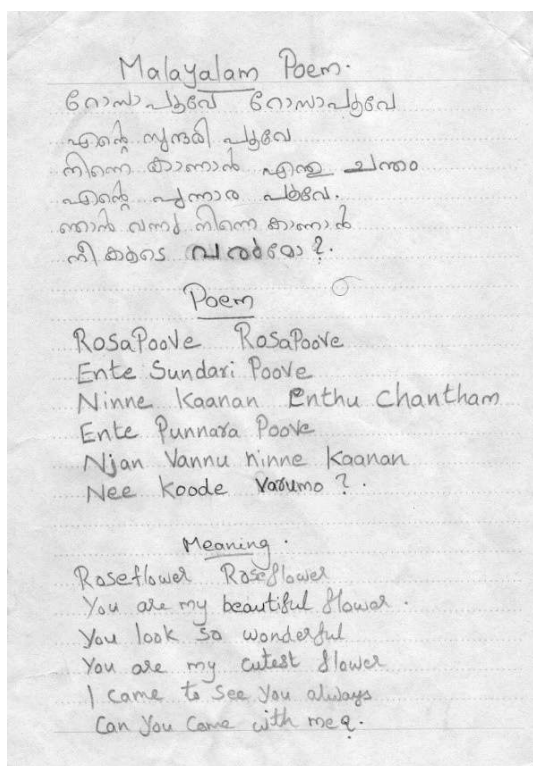 Malayalam Poem.
റോസാപൂവേ റോസാപൂവേ
എന്റെ സുന്ദരി പൂവേ
നിന്നെ കാണാൻ എന്തു ചന്തം
എന്റെ പുന്നാര പൂവേ.
ഞാൻ വന്നു നിന്നെ കാണാൻ
നീ കൂടെ വരുമോ ?.
Poem
RosaPoove RosaPoove
Ente Sundari Poove
Ninne Kaanan Enthu Chantham
Ente Punnara Poove
Njan Vannu ninne Kaanan
Nee Koode Varumo ? .
Meaning .
Roseflower Roseflower
You are my beautiful flower .
You look so wonderful
You are my cutest flower
I came to see you always
Can You Come with me?.